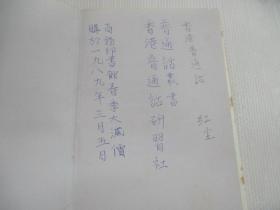 香港普通話
紅尘
普通話叢書
香港普通話研習社
商務印書館春季大減價
購於一九八九年三月五日